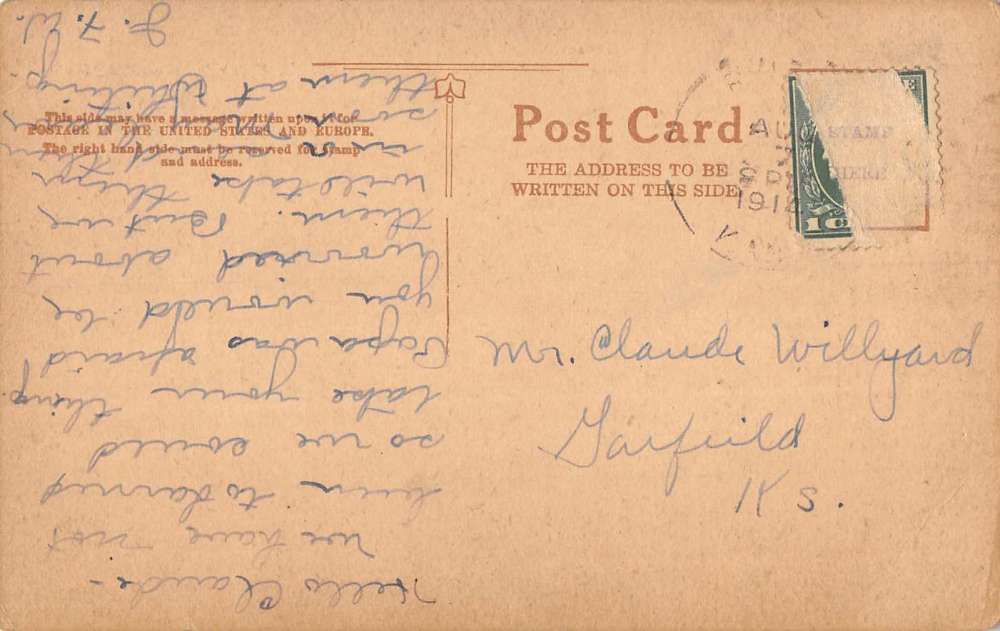 Post Card
THE ADDRESS TO BE
WRITTEN ON THIS SIDE
This side may have a message written upon it for
POSTAGE IN THE UNITED STATES AND EUROPE.
The right hand side must be reserved for stamp
and address.
STAMP
HERE
AU
1914
1c
Mr. Claude Willyard
Garfield
Ks.
Hello Claude-
we have not
been to Larned
so we could
take your things.
Papa was afraid
you would be
worried about
them. But we
will take them
in
them at Whiting.
J. F. W.